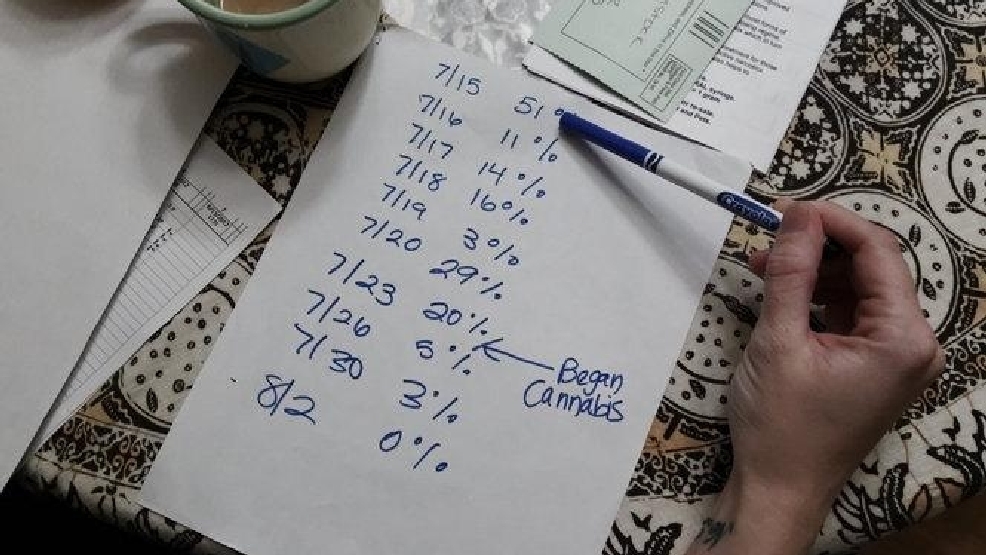 7/15 51%
7/16 11%
7/17 14%
7/18 16%
7/19 3%
7/20 29%
7/23 20%
7/26 5%
7/30 3%
8/2 0%
Began
Cannabis
Crayola